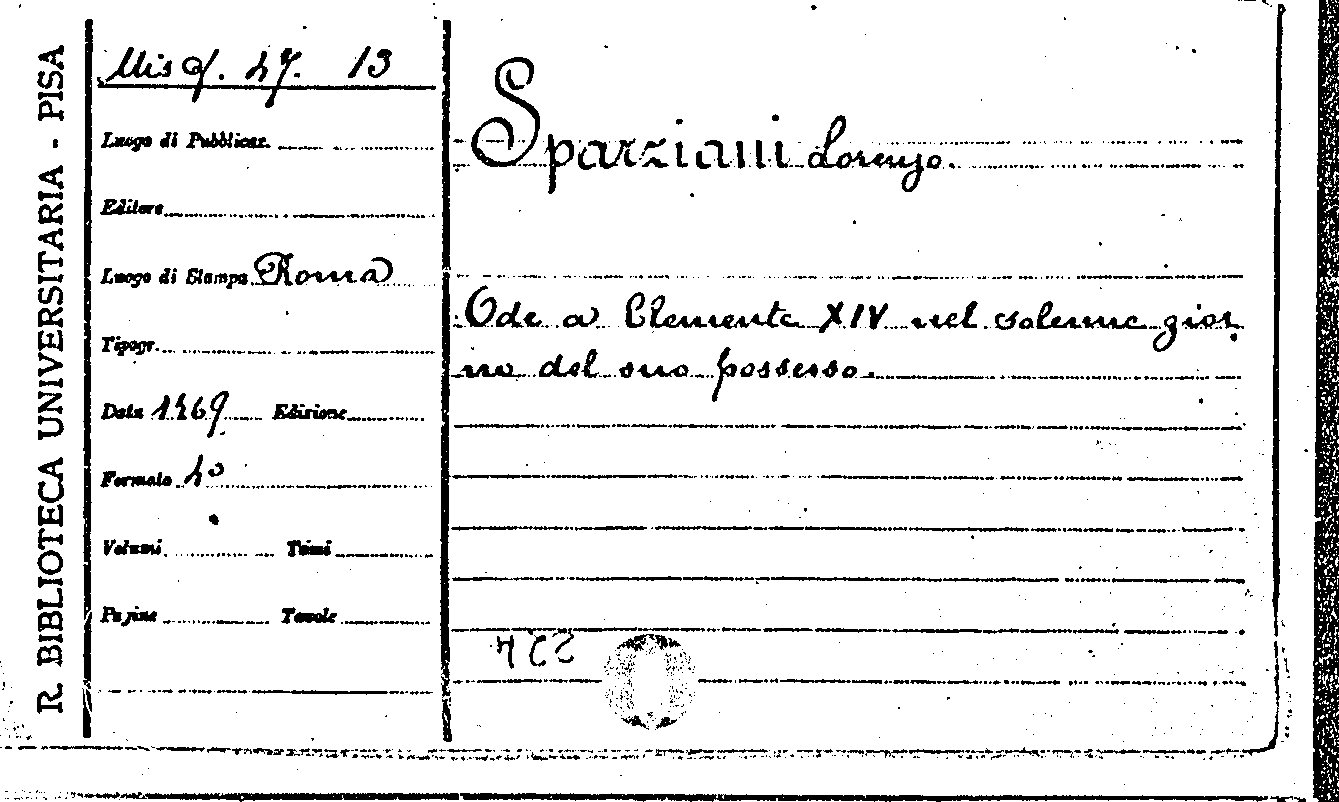 R. BIBLIOTECA UNIVERSITARIA - PISA
Misc. 13
Luogo di Pubblicaz.
Editore
Luogo di Stampa Roma
Tipogr.
Data 1769 Edizione
Formato 4°
Volumi Tomi
Pagine Tavole
Sparziani Lorenzo.
Ode a Clemente XIV nel solenne gior
no del suo possesso.